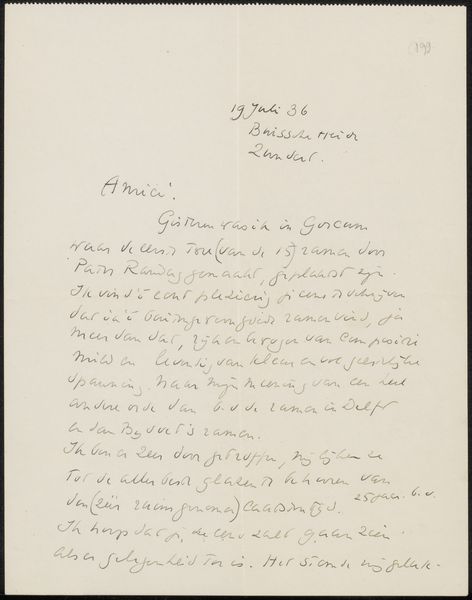 (19)
19 Juli 36
Buissche Heide
Zundert.
Amici!
Gisteren was ik in Gorcum
waar de eerste twee (van de 15) ramen door
geplaatst zijn.
Ik vind 't echt plezierig je eens te schrijven
dat ik 't buitengewoon goede ramen vind, ja
meer dan dat, zij en van compositie
mild en levendig van kleur en geestelijke
spanning. Naar mijn meening van een heel
andere orde dan b.v. de ramen in Delft
en dan ramen.
Ik ben er zeer door getroffen, mij lijken ze
tot de allerbeste glazen te behooren van
den (zéér ruim genomen) laatsten tijd. 25 jaar b.v.
Ik hoop dat je ze eens zult gaan zien
als er gelegenheid toe is. Het stemde mij geluk-